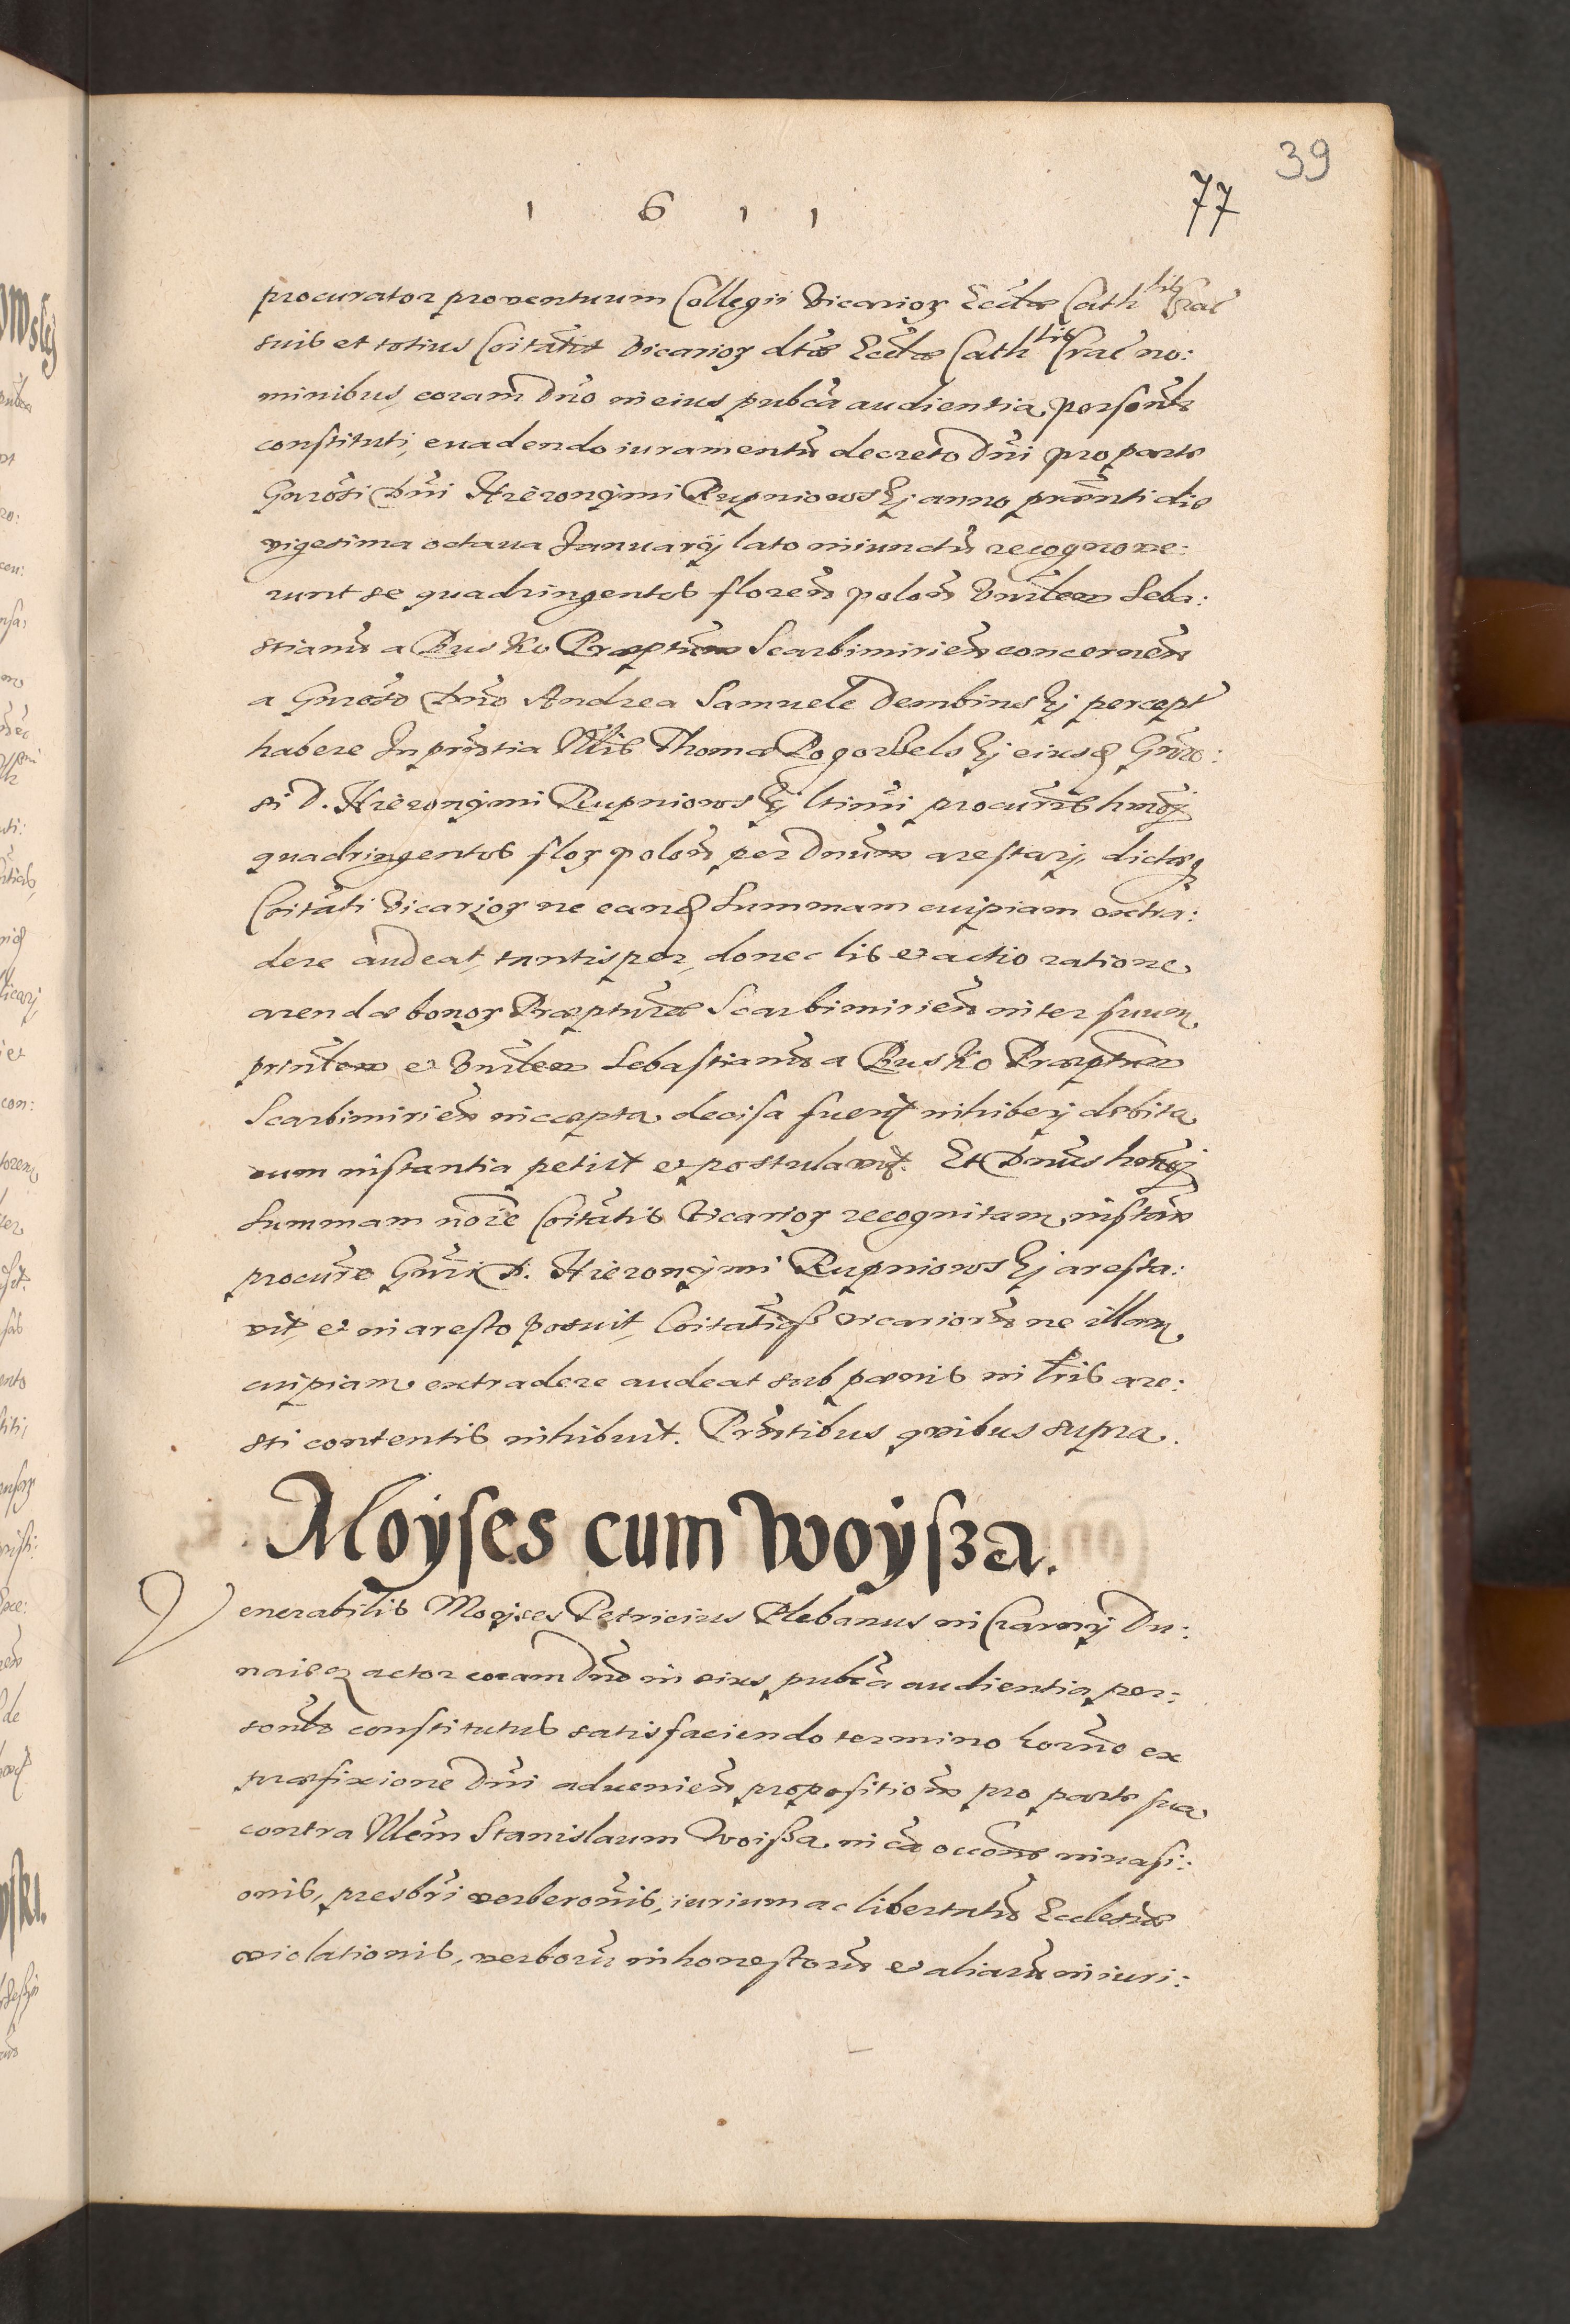 39
77
1 6 1 1
procurator proventuum Collegii Vicarior Eccłæ Cathlis Crac
suis et totius Coitatis Vicarior dtæ Eccłæ Cathlis Crac no:
minibus, coram Dno in eius pubca audientia personlr
constituti, euadendo iuramentũ decreto Dni pro parte
Gnrosi Dni Hieronymi Rupniowskj anno prænti die
vigesima octaua Januarij lato iniunctũ recognove:
runt se quadringentos floreñ poloñ Vnrlem Seba:
stianũ a Busko Præptum Scarbimirieñ concerneñ
a Gnroso Dno Andrea Samuele Dembinskj percept
habere In prñtia Nlis Thomæ Pogorzelskj eiusd Gnro:
si D. Hieronymi Rupniowskj ltimi procuris hmoj
quadringentos flor poloñ per Dnum arestarj, dictæq
Coitati Vicarior ne eand Summam cuipiam extra:
dere audeat, tantisper, donec lis et actio ratione
arendæ bonor Præpturæ Scarbimirieñ inter suum
prinlem et Vnrlem Sebastianũ a Busko Præptum
Scarbimirieñ incæpta decisa fuerit inhiberj debita
cum instantia petiit et postulavit. Et Dnus hmoj
Summam noie Coitatis Vicarior recognitam, instañ
procure Gnri D. Hieronymi Rupniowskj aresta:
vit, et in aresto posuit, Coitatiqß vicariorũ ne illam
cuipiam extradere audeat sub pænis in lris are:
sti contentis inhibuit. Prñtibus quibus supra.
Moyses cum Woyßa.
Venerabilis Moyses Petricius Plebanus in Czarny Du:
naiecz actor coram Dno in eius pubca audientia per:
sonlr constitutus satisfaciendo termino horno ex
præfixione Dni adueniẽñ propositioñ pro parte sua
contra Nlem Stanislaum Woißa in ca occõne inuasi:
onis, presbri verberonis, iurium ac libertatũ Ecclesiæ
violationis, verborũ inhonestorũ et aliarũ iniuri: